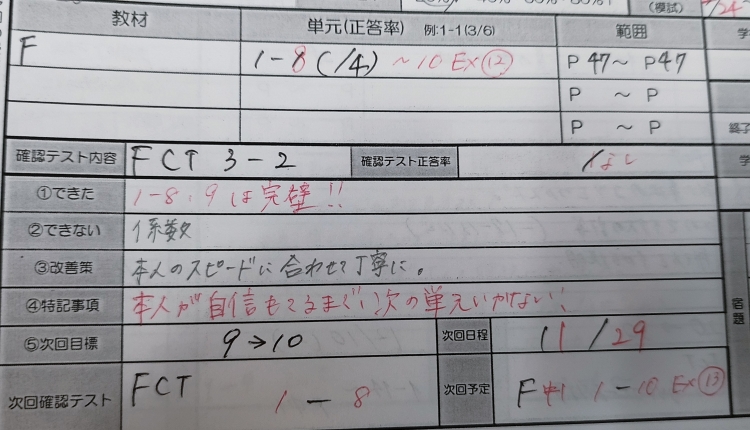 (模試) /24-
教材 単元(正答率) 例:1-1(3/6) 範囲
F 1-8(/4) ~10 Ex⑫ P 47~ P47
P ~ P
P ~ P
確認テスト内容 FCT 3-2 確認テスト正答率 なし
①できた 1-8、9は完璧!!
②できない 係数
③改善策 本人のスピードに合わせて丁寧に。
④特記事項 本人が自信もてるまで次の単元いかない!
⑤次回目標 9→10 次回日程 11/29
次回確認テスト FCT 1-8 次回予定 F 1-10 Ex⑬
宿題